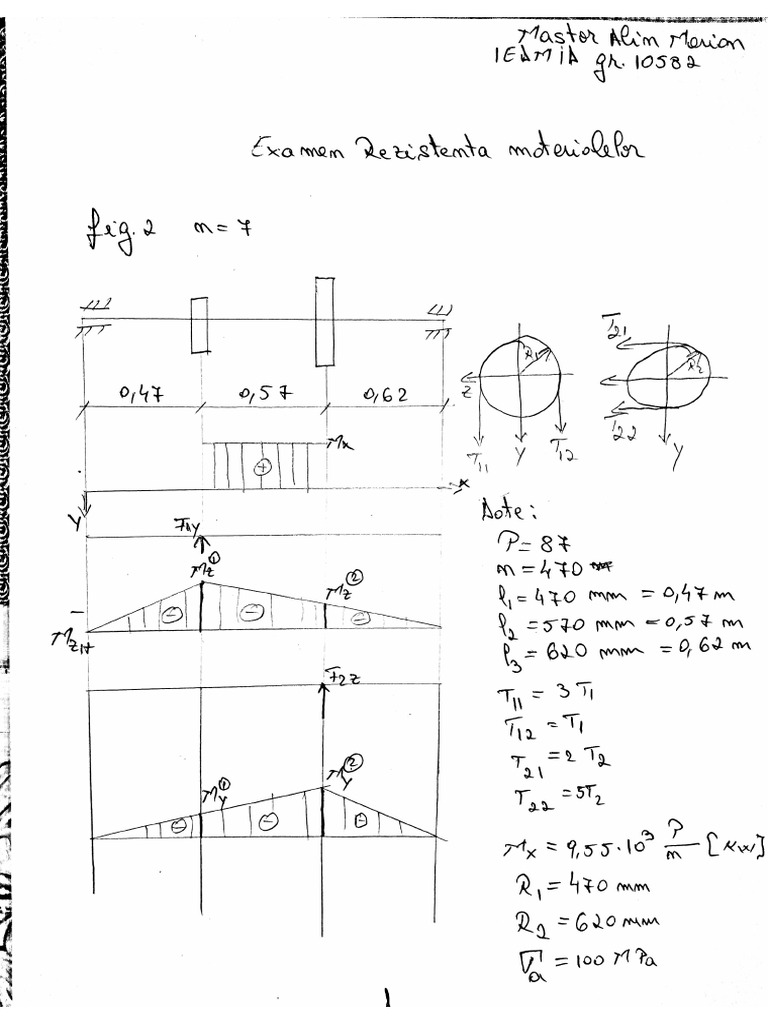 Mastor Alin Marian
IEAMIA gr. 10582
Examen Rezistenta materialelor
fig. 2 n = 7
0,47 0,57 0,62
Mx
+
x
y
R1
z
T11 y T12
T21
R2
T22
y
F1y
Mz①
Mz②
- - -
F2z
My①
My②
- - -
Date:
P = 87
n = 470
l1 = 470 mm = 0,47 m
l2 = 570 mm = 0,57 m
l3 = 620 mm = 0,62 m
T11 = 3 T1
T12 = T1
T21 = 2 T2
T22 = 5T2
Mx = 9,55·10³ P/n [KW]
R1 = 470 mm
R2 = 620 mm
σa = 100 MPa
1